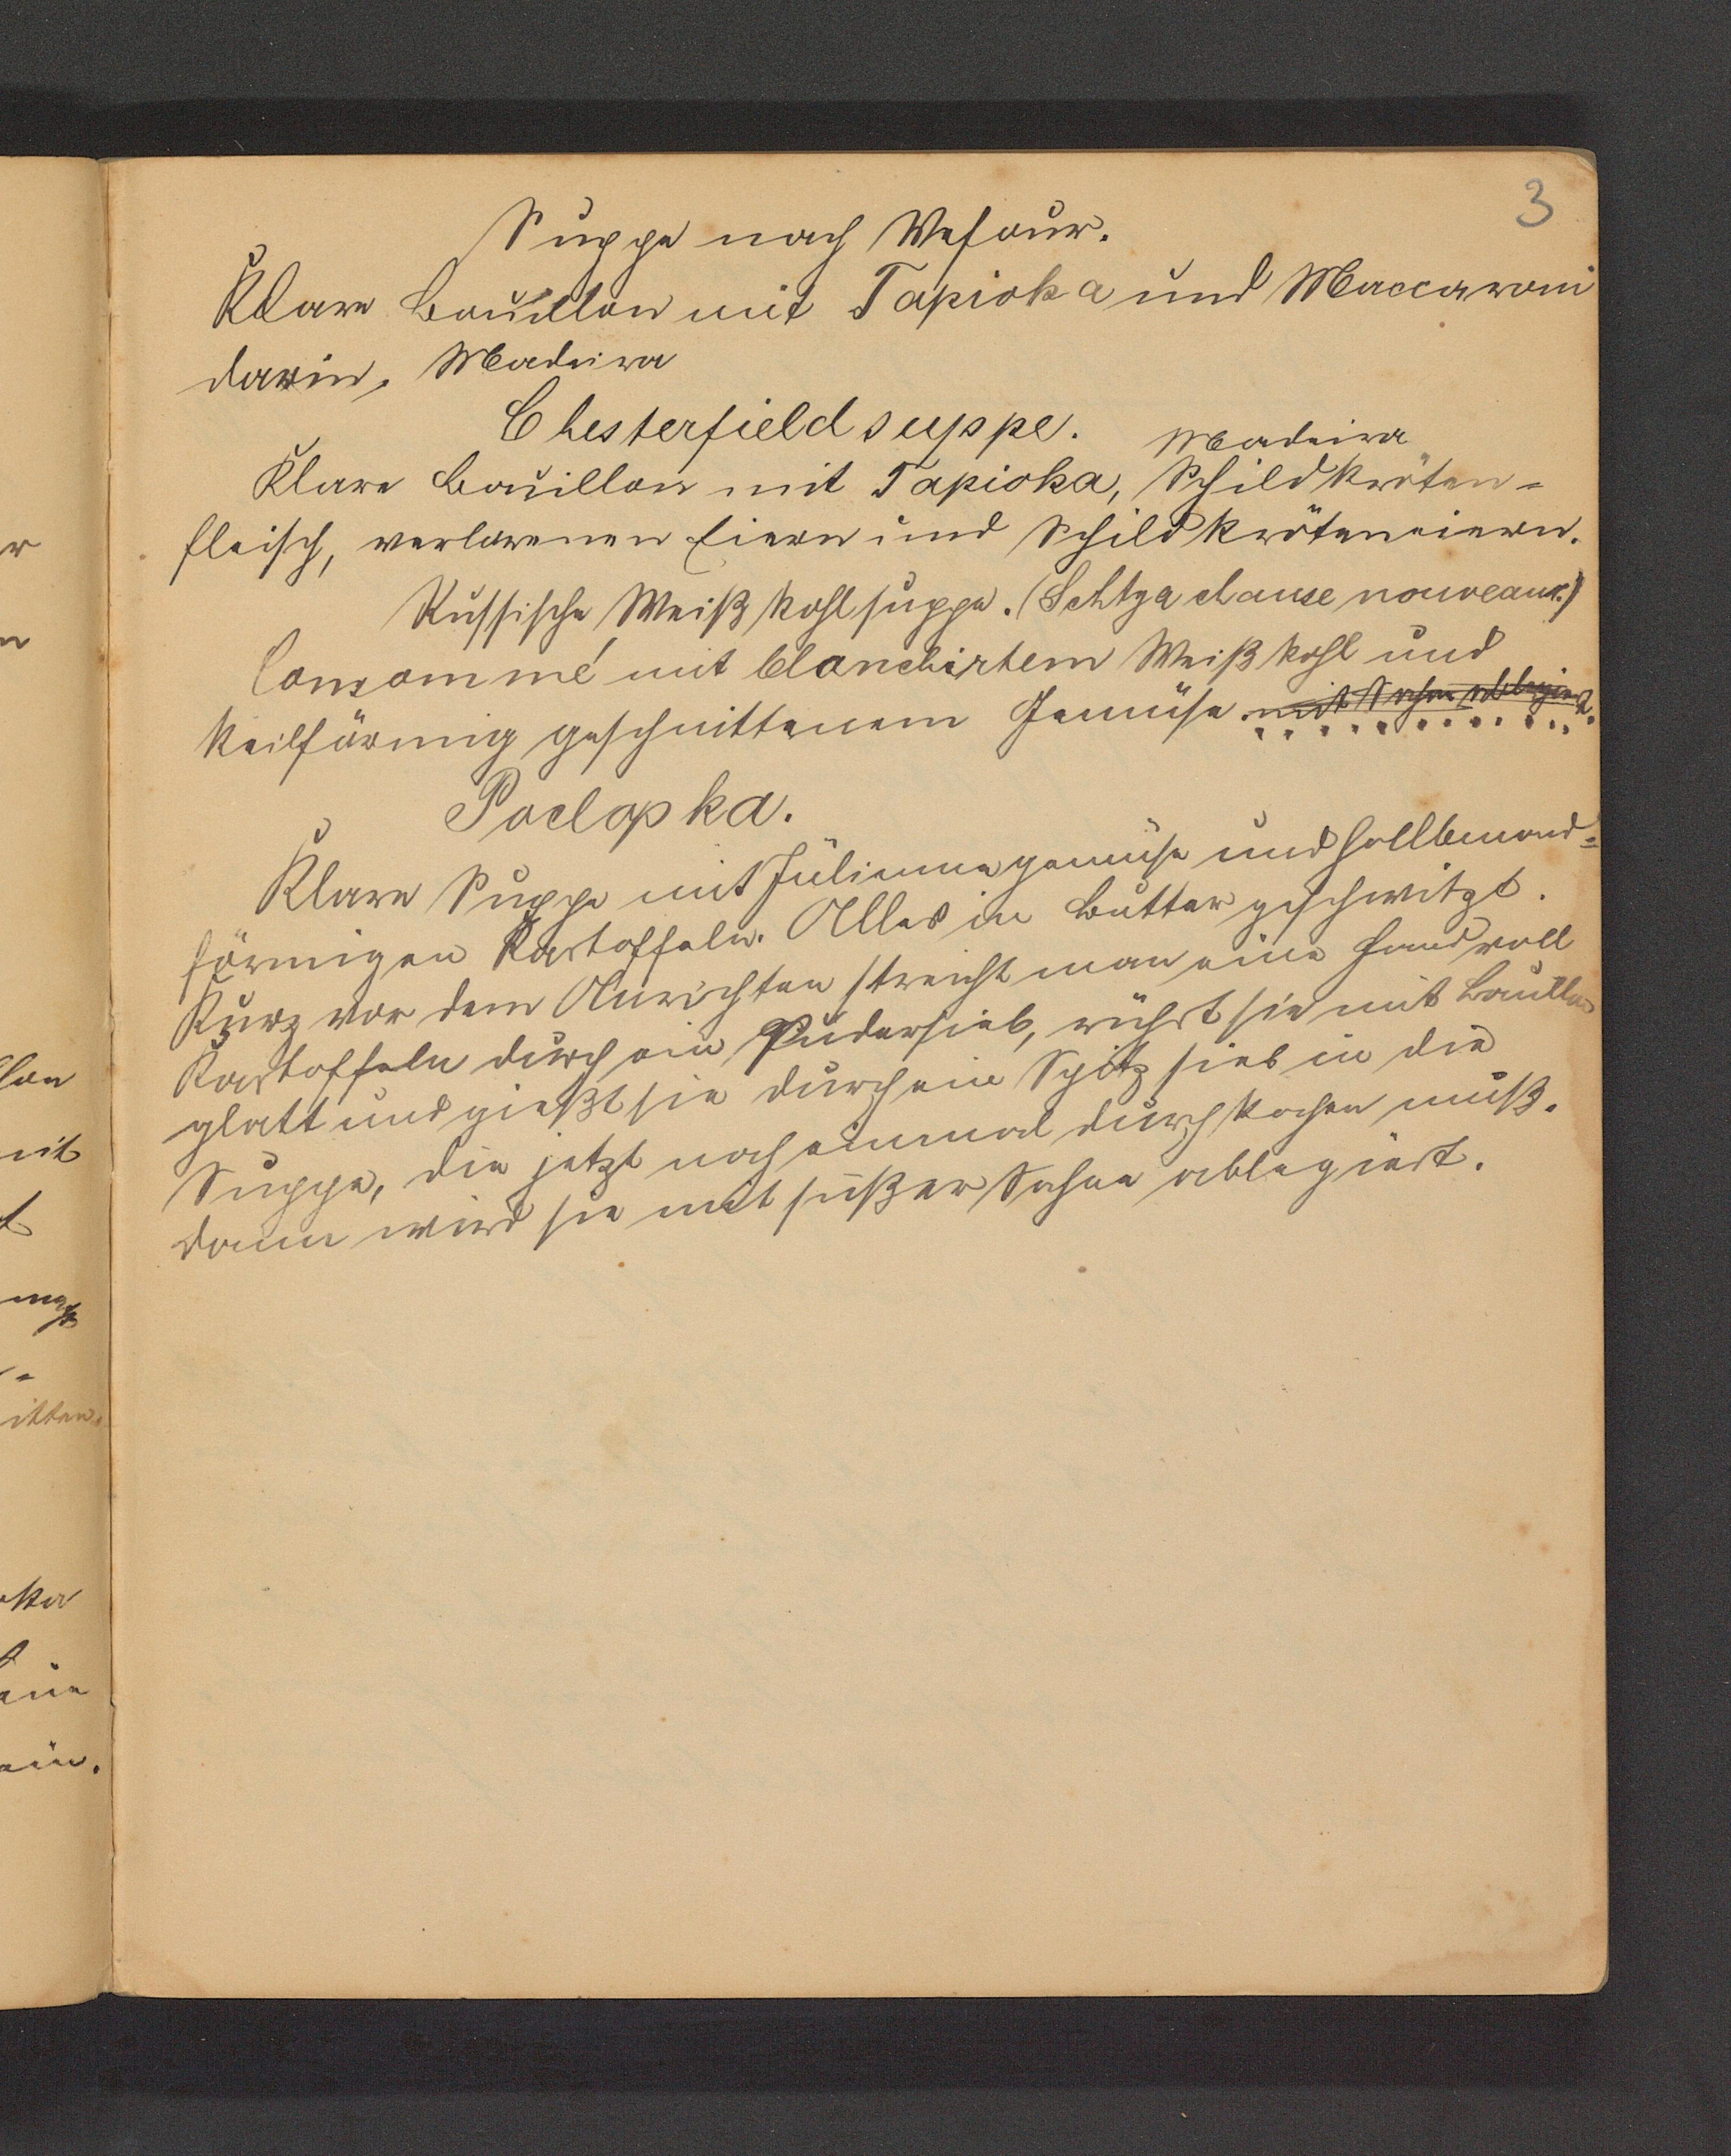 3
Suppe nach Vefour.
Klare Bouillon mit Tapioka und Maccaroni
darin. Madeira
Chesterfieldsuppe.
Madeira
Klare Bouillon mit Tapioka, Schildkröten=
fleisch, verlorenen Eiern und Schildkröteneiern.
Russische Weißkohlsuppe. (Schtya chause nouveaux.)
Consommé mit blanchirtem Weißkohl und
keilförmig geschnittenem Gemüse. mit Sahne ablegiert.
Poclapka.
Klare Suppe mit Juliennegemüse und hallbmond=
förmigen Kartoffeln. Alles in Butter geschwitzt.
Kurz vor dem Anrichten streicht man eine Handvoll
Kartoffeln durch ein Pudersieb, rührt sie mit Bouillon
glatt und gießt sie durch ein Spitzsieb in die
Suppe, die jetzt noch einmal durchkochen muß.
dann wird sie mit süßer Sahne ablegiert.